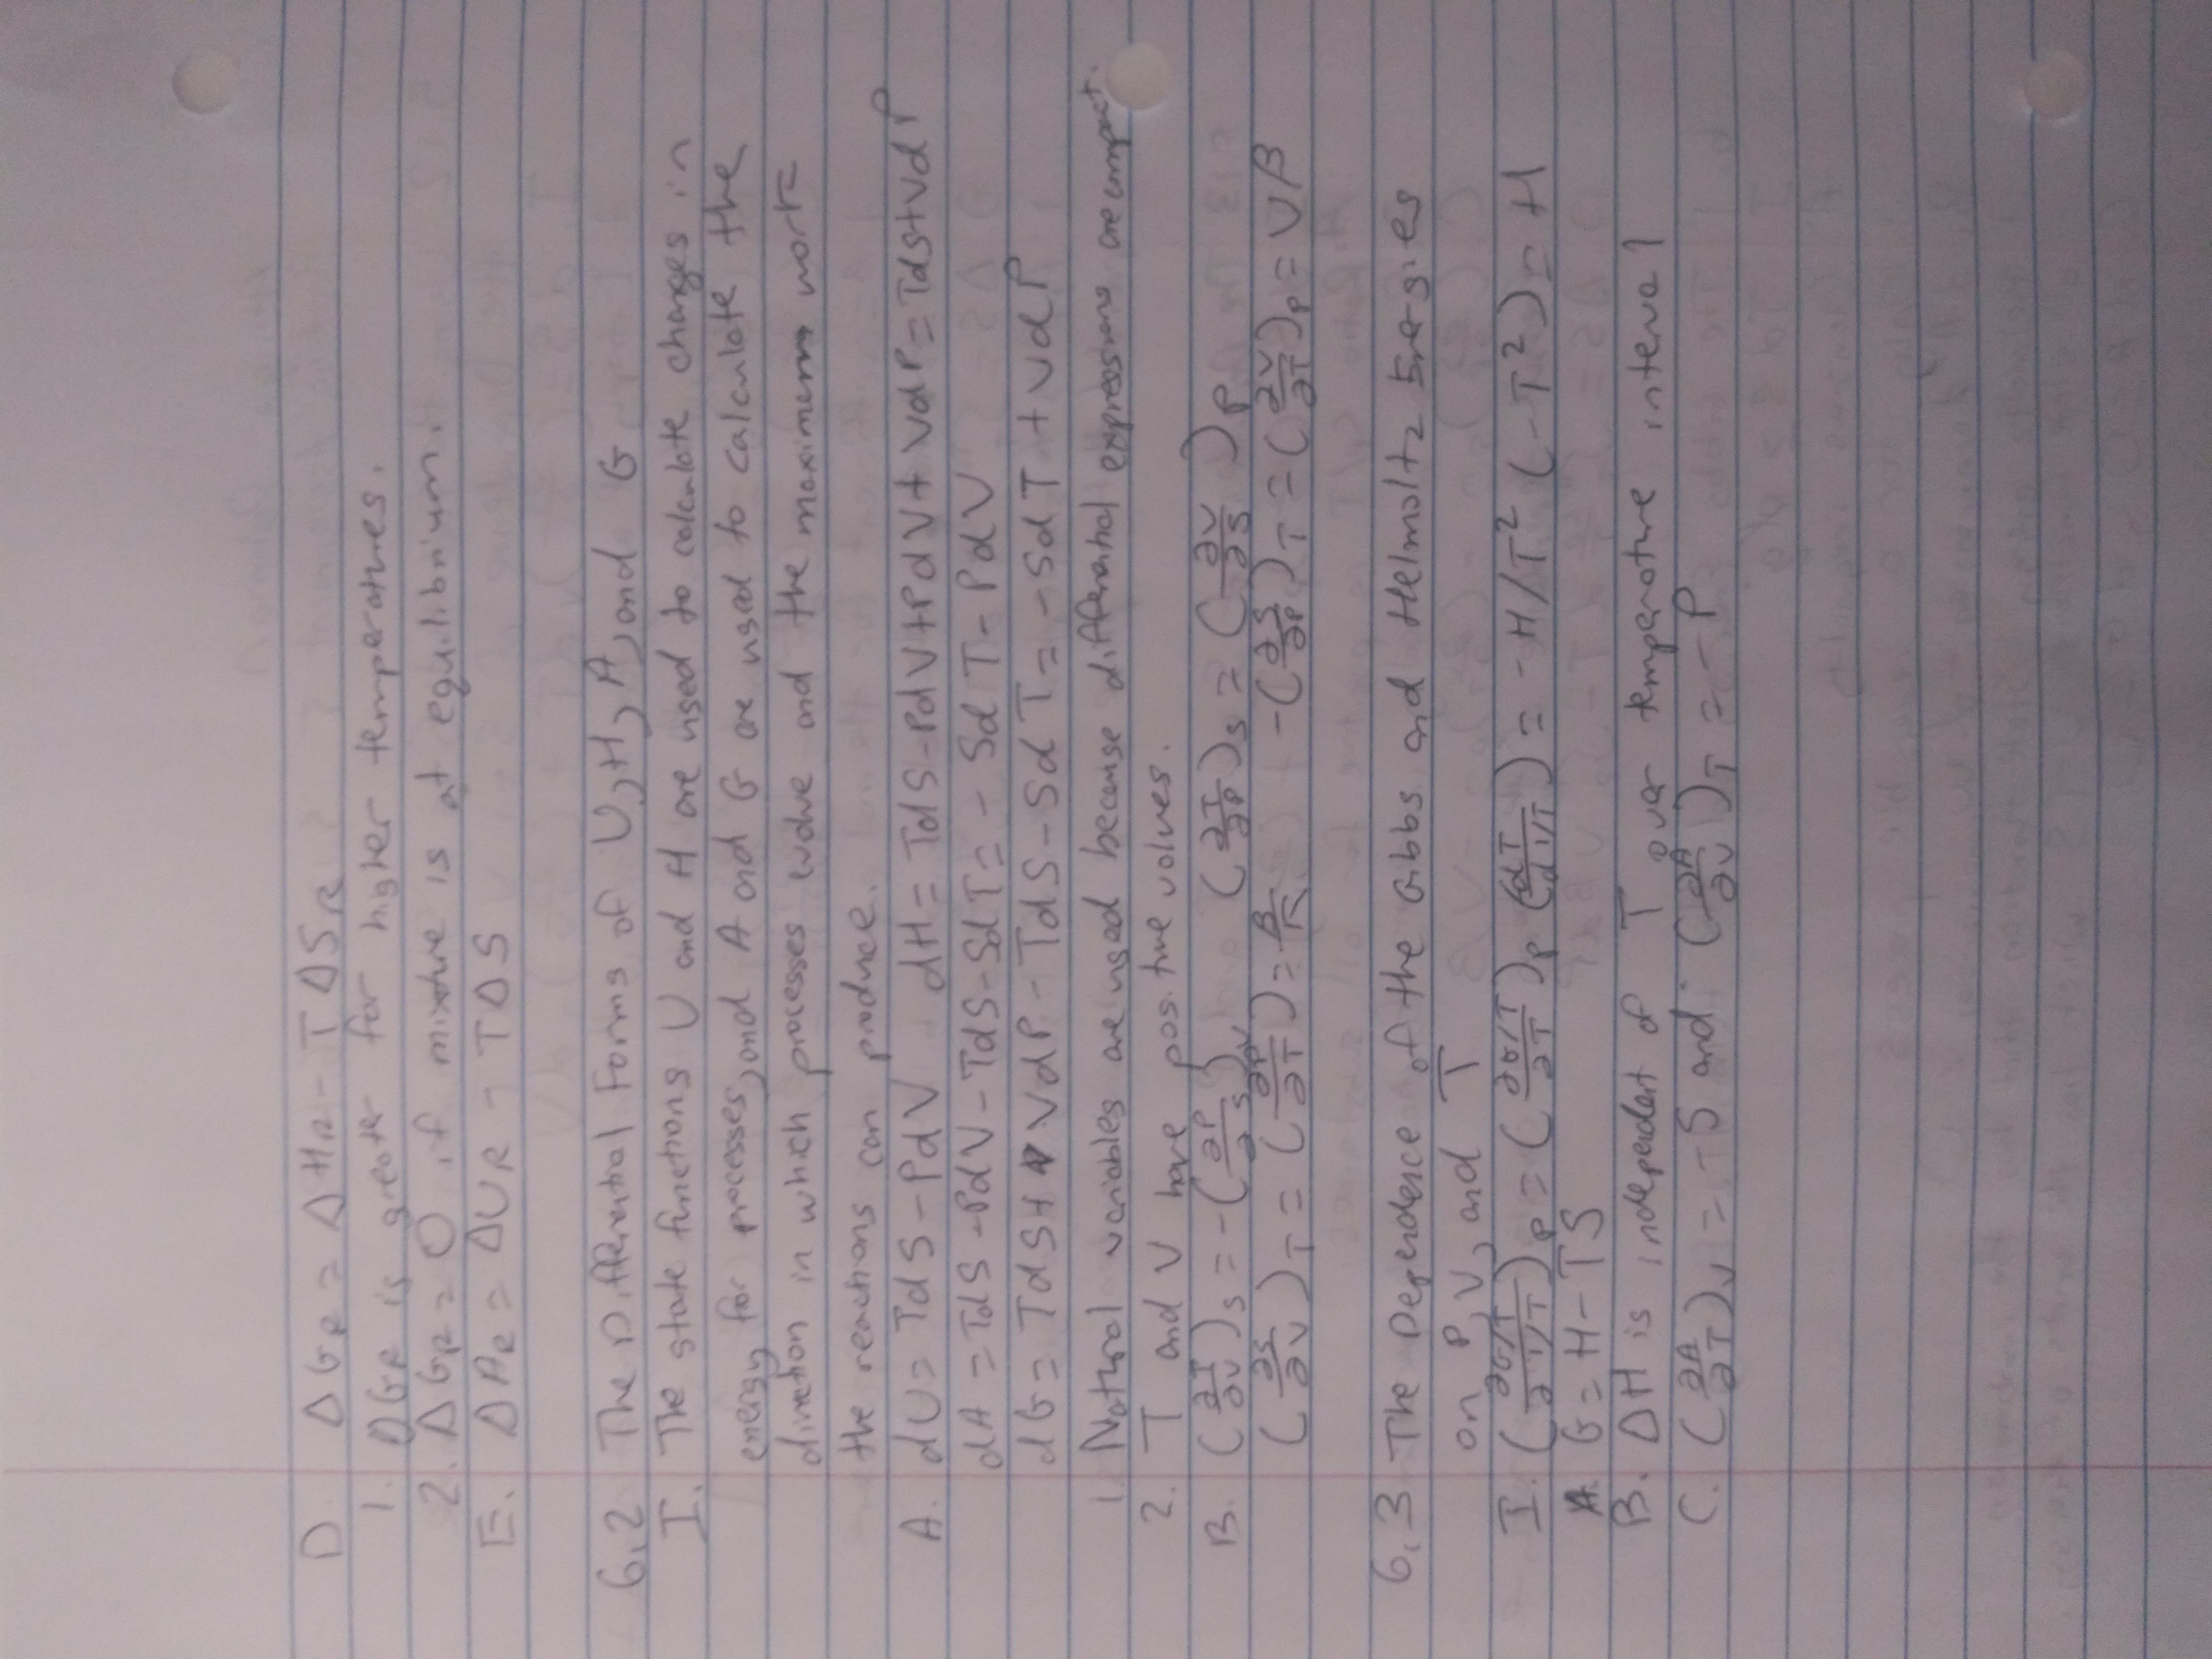 D. ΔG_R = ΔH_R - TΔS_R
1. ΔG_R is greater for higher temperatures.
2. ΔG_R = 0 if mixture is at equilibrium.
E. ΔA_R = ΔU_R - TΔS
6.2 The Differential Forms of U, H, A, and G
I. The state functions U and H are used to calculate changes in
energy for processes, and A and G are used to calculate the
direction in which processes evolve and the maximum work
the reactions can produce.
A. dU = TdS - PdV dH = TdS - PdV + PdV + VdP = TdS + VdP
dA = TdS - PdV - TdS - SdT = - SdT - PdV
dG = TdS + VdP - TdS - SdT = - SdT + VdP
1. Natural variables are used because differential expressions are compact.
2. T and V have positive values.
B. (∂T/∂V)_S = -(∂P/∂S)_V (∂T/∂P)_S = (∂V/∂S)_P
(∂S/∂V)_T = (∂P/∂T) = β/κ -(∂S/∂P)_T = (∂V/∂T)_P = Vβ
6.3 The Dependence of the Gibbs and Helmoltz Energies
on P, V, and T
I. (∂G/T/∂1/T)_P = (∂G/T/∂T)_P (dT/d1/T) = -H/T² (-T²) = H
A. G = H - TS
B. ΔH is independent of T over temperature interval
C. (∂A/∂T)_V = -S and (∂A/∂V)_T = -P